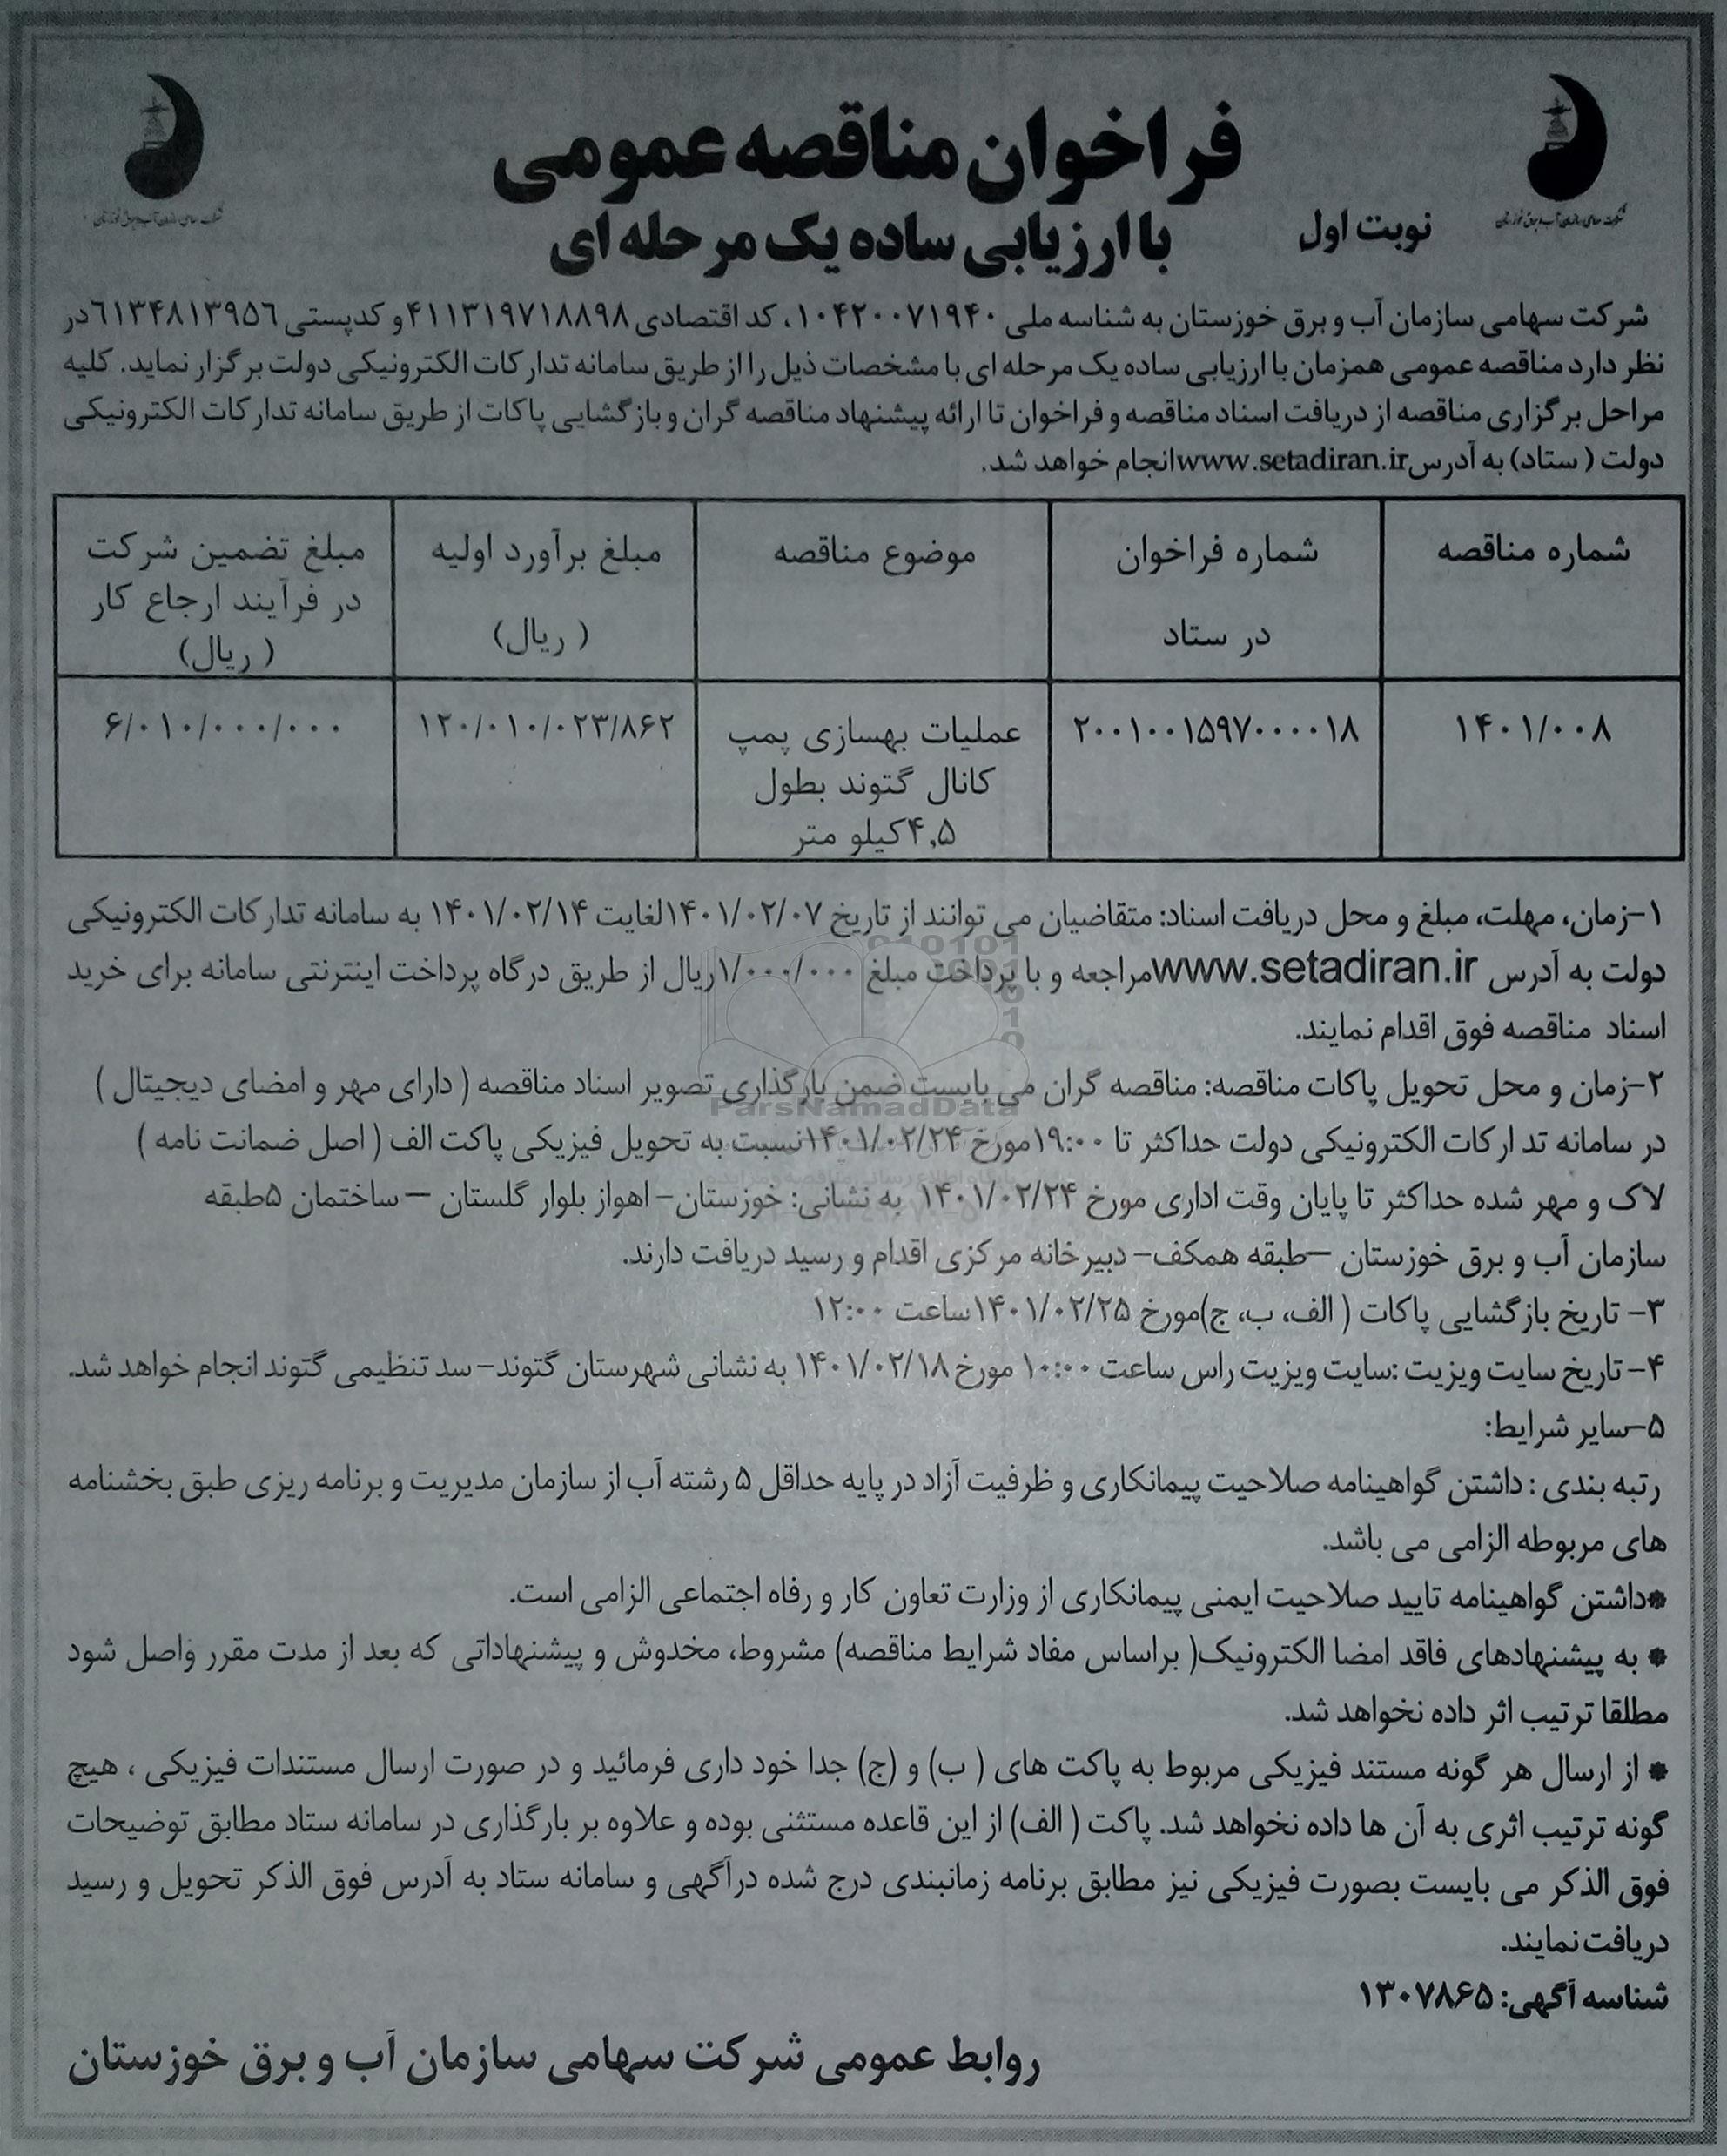 فراخوان مناقصه عمومی
با ارزیابی ساده یک مرحله ای
نوبت اول
شرکت سهامی سازمان آب و برق خوزستان
شرکت سهامی سازمان آب و برق خوزستان
شرکت سهامی سازمان آب و برق خوزستان به شناسه ملی ۱۰۴۲۰۰۷۱۹۴۰، کد اقتصادی ۴۱۱۳۱۹۷۱۸۸۹۸ و کدپستی ۶۱۳۴۸۱۳۹۵۶در
نظر دارد مناقصه عمومی همزمان با ارزیابی ساده یک مرحله ای با مشخصات ذیل را از طریق سامانه تدارکات الکترونیکی دولت برگزار نماید. کلیه
مراحل برگزاری مناقصه از دریافت اسناد مناقصه و فراخوان تا ارائه پیشنهاد مناقصه گران و بازگشایی پاکات از طریق سامانه تدارکات الکترونیکی
دولت ( ستاد) به آدرسwww.setadiran.irانجام خواهد شد.
شماره مناقصه
شماره فراخوان
در ستاد
موضوع مناقصه
مبلغ برآورد اولیه
( ریال)
مبلغ تضمین شرکت
در فرآیند ارجاع کار
( ریال)
۱۴۰۱/۰۰۸
۲۰۰۱۰۰۱۵۹۷۰۰۰۰۱۸
عملیات بهسازی پمپ
کانال گتوند بطول
۴,۵کیلو متر
۱۲۰/۰۱۰/۰۲۳/۸۶۲
۶/۰۱۰/۰۰۰/۰۰۰
۱-زمان، مهلت، مبلغ و محل دریافت اسناد: متقاضیان می توانند از تاریخ ۱۴۰۱/۰۲/۰۷لغایت ۱۴۰۱/۰۲/۱۴ به سامانه تدارکات الکترونیکی
دولت به آدرس www.setadiran.irمراجعه و با پرداخت مبلغ ۱/۰۰۰/۰۰۰ریال از طریق درگاه پرداخت اینترنتی سامانه برای خرید
اسناد مناقصه فوق اقدام نمایند.
۲-زمان و محل تحویل پاکات مناقصه: مناقصه گران می بایست ضمن بارگذاری تصویر اسناد مناقصه ( دارای مهر و امضای دیجیتال )
ParsNamadData
در سامانه تدارکات الکترونیکی دولت حداکثر تا ۱۹:۰۰مورخ ۱۴۰۱/۰۲/۲۴نسبت به تحویل فیزیکی پاکت الف ( اصل ضمانت نامه )
لاک و مهر شده حداکثر تا پایان وقت اداری مورخ ۱۴۰۱/۰۲/۲۴ به نشانی: خوزستان- اهواز بلوار گلستان – ساختمان ۵طبقه
سازمان آب و برق خوزستان –طبقه همکف- دبیرخانه مرکزی اقدام و رسید دریافت دارند.
۳- تاریخ بازگشایی پاکات ( الف، ب، ج)مورخ ۱۴۰۱/۰۲/۲۵ساعت ۱۲:۰۰
۴- تاریخ سایت ویزیت :سایت ویزیت راس ساعت ۱۰:۰۰ مورخ ۱۴۰۱/۰۲/۱۸ به نشانی شهرستان گتوند- سد تنظیمی گتوند انجام خواهد شد.
۵-سایر شرایط:
رتبه بندی : داشتن گواهینامه صلاحیت پیمانکاری و ظرفیت آزاد در پایه حداقل ۵ رشته آب از سازمان مدیریت و برنامه ریزی طبق بخشنامه
های مربوطه الزامی می باشد.
*داشتن گواهینامه تایید صلاحیت ایمنی پیمانکاری از وزارت تعاون کار و رفاه اجتماعی الزامی است.
* به پیشنهادهای فاقد امضا الکترونیک( براساس مفاد شرایط مناقصه) مشروط، مخدوش و پیشنهاداتی که بعد از مدت مقرر واصل شود
مطلقا ترتیب اثر داده نخواهد شد.
* از ارسال هر گونه مستند فیزیکی مربوط به پاکت های ( ب) و (ج) جدا خود داری فرمائید و در صورت ارسال مستندات فیزیکی ، هیچ
گونه ترتیب اثری به آن ها داده نخواهد شد. پاکت ( الف) از این قاعده مستثنی بوده و علاوه بر بارگذاری در سامانه ستاد مطابق توضیحات
فوق الذکر می بایست بصورت فیزیکی نیز مطابق برنامه زمانبندی درج شده درآگهی و سامانه ستاد به آدرس فوق الذکر تحویل و رسید
دریافت نمایند.
شناسه آگهی: ۱۳۰۷۸۶۵
روابط عمومی شرکت سهامی سازمان آب و برق خوزستان